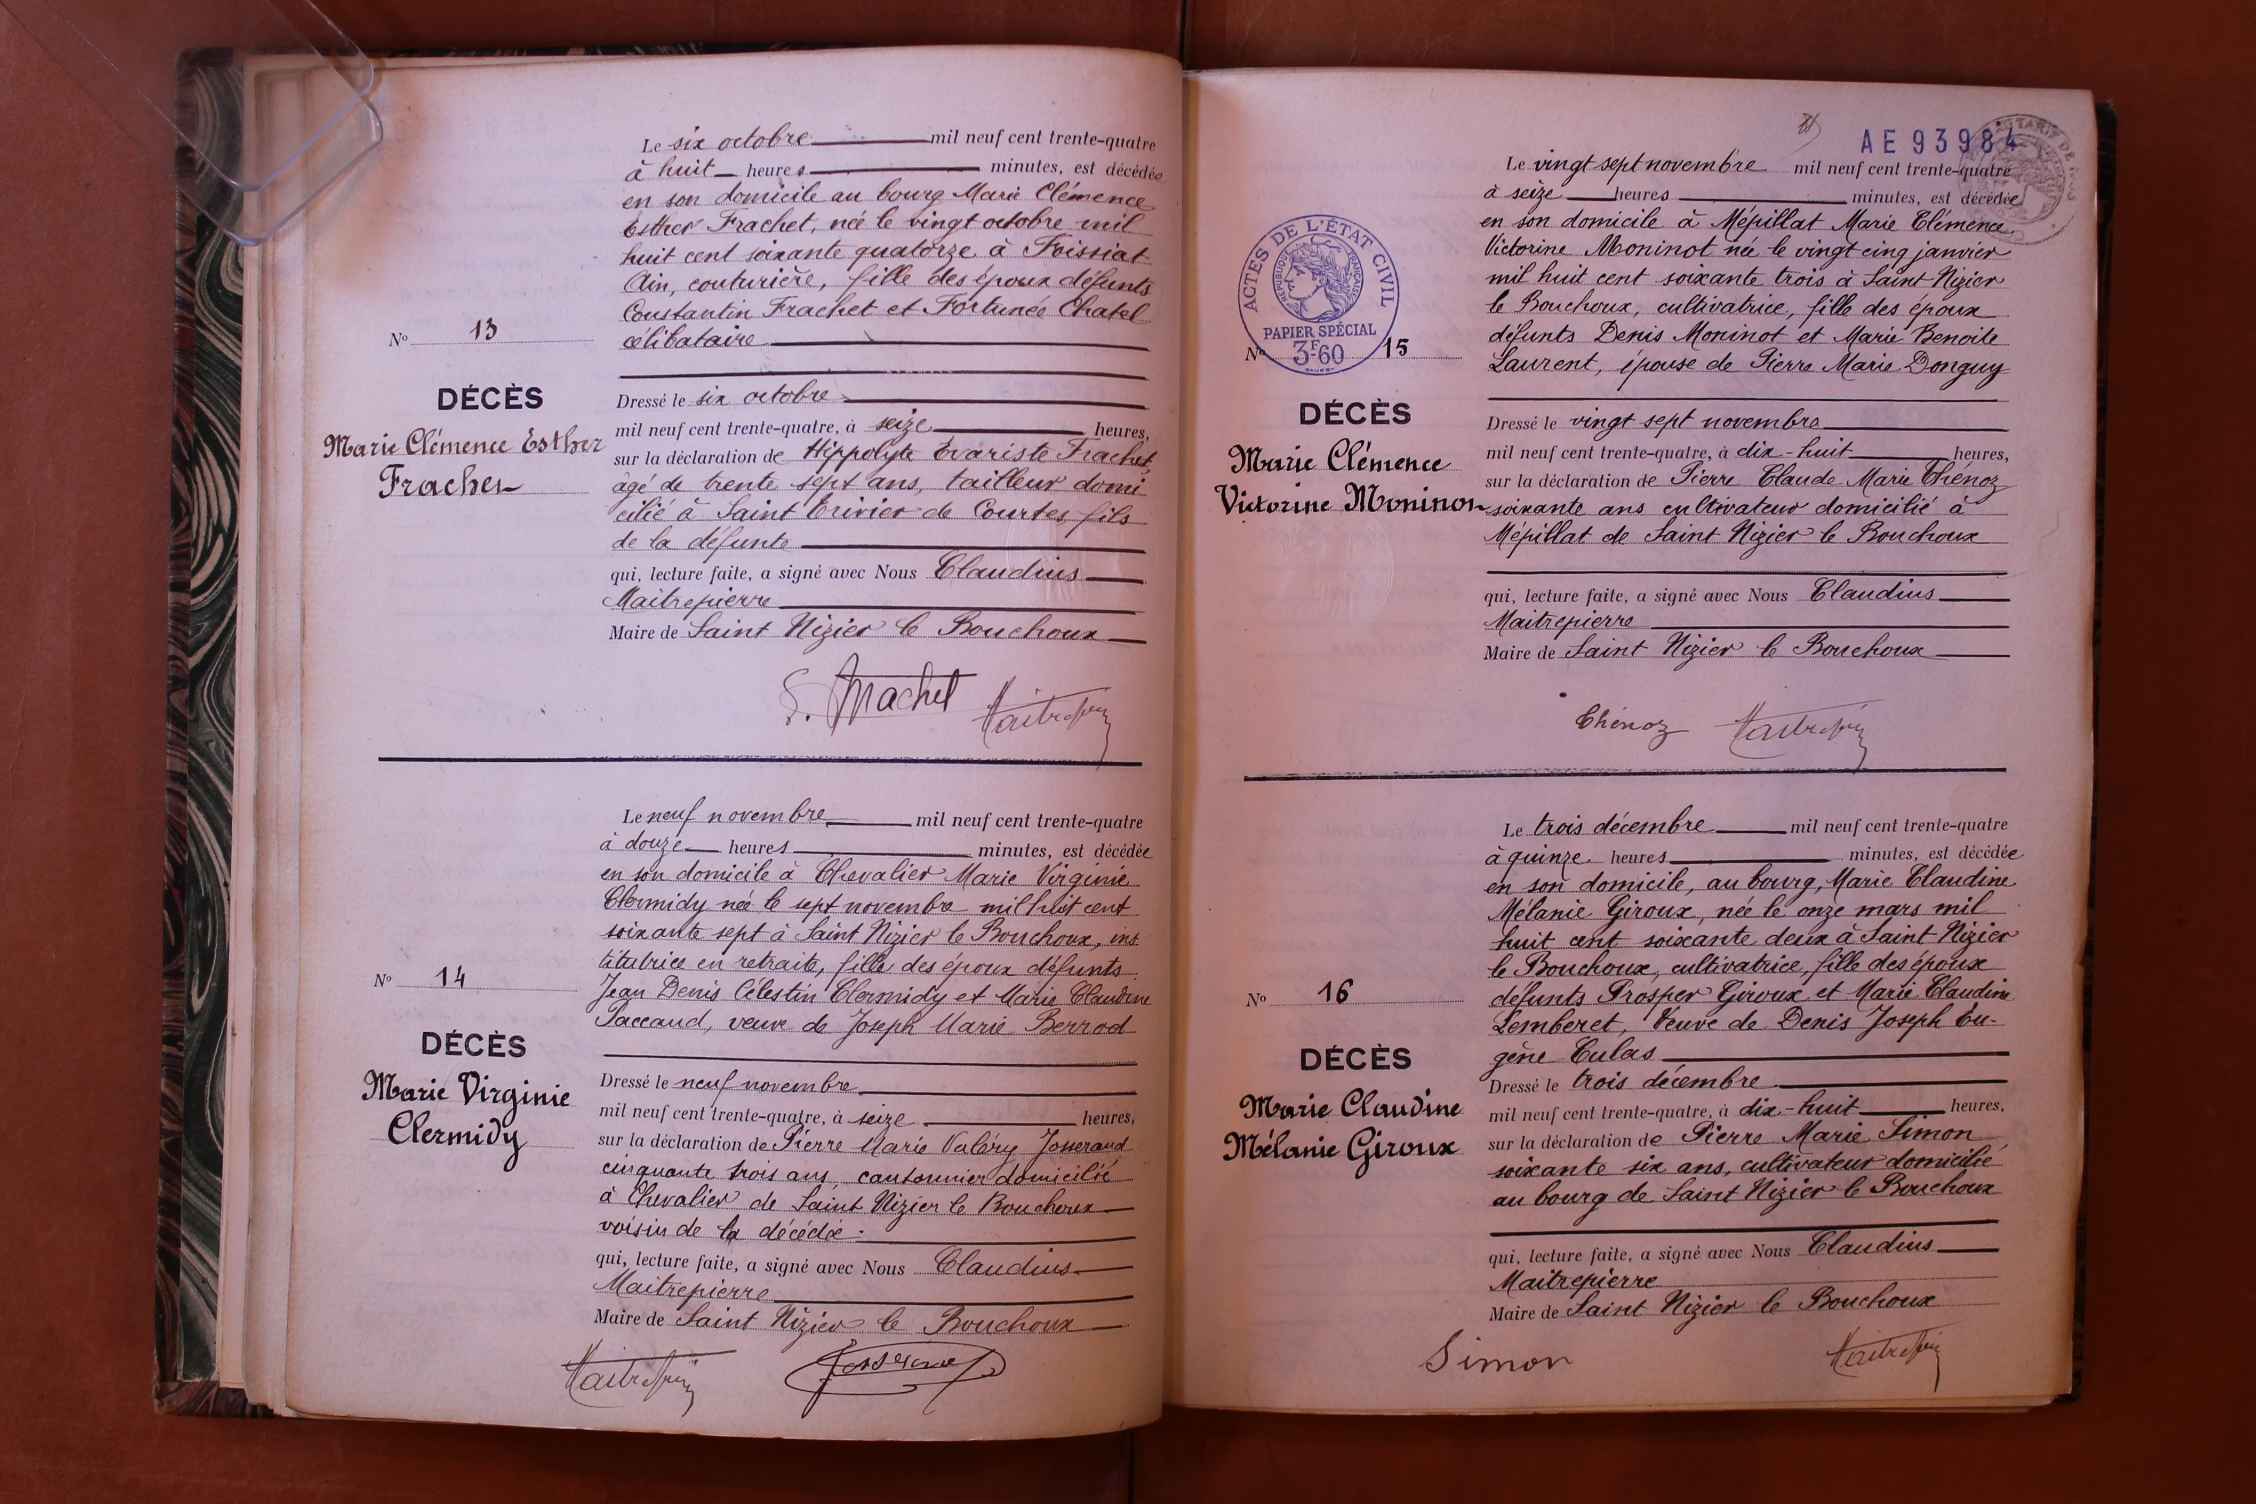 Le six octobre mil neuf cent trente-quatre
à huit heures minutes, est décédée
en son domicile au bourg Marie Clémence
Esther Frachet, née le vingt octobre mil
huit cent soixante quatorze à Foissiat
Ain, couturière, fille des époux défunts
Constantin Frachet et Fortunée Chatel
célibataire
N° 13
DÉCÈS
Marie Clémence Esther
Frachet
Dressé le six octobre
mil neuf cent trente-quatre, à seize heures,
sur la déclaration de Hippolyte Evariste Frachet,
agé de trente sept ans, tailleur domi
cilié à Saint Trivier de Courtes fils
de la défunte
qui, lecture faite, a signé avec Nous Claudius
Maitrepierre
Maire de Saint Nizier le Bouchoux
Frachet Maitrepierre
Le neuf novembre mil neuf cent trente-quatre
à douze heures minutes, est décédée
en son domicile à Chevalier Marie Virginie
Clermidy née le sept novembre mil huit cent
soixante sept à Saint Nizier le Bouchoux, ins
titutrice en retraite, fille des époux défunts
Jean Denis Célestin Clermidy et Marie Claudine
Paccaud, veuve de Joseph Marie Berrod
N° 14
DÉCÈS
Marie Virginie
Clermidy
Dressé le neuf novembre
mil neuf cent trente-quatre, à seize heures,
sur la déclaration de Pierre Marie Valéry Josserand
cinquante trois ans, cantonnier domicilié
à Chevalier de Saint Nizier le Bouchoux
voisin de la décédée
qui, lecture faite, a signé avec Nous Claudius
Maitrepierre
Maire de Saint Nizier le Bouchoux
Maitrepierre Josserand
AE 93984
Le vingt sept novembre mil neuf cent trente-quatre
à seize heures minutes, est décédée
en son domicile à Mépillat Marie Clémence
Victorine Moninot née le vingt cinq janvier
mil huit cent soixante trois à Saint Nizier
le Bouchoux, cultivatrice, fille des époux
défunts Denis Moninot et Marie Benoite
Laurent, épouse de Pierre Marie Donguy
ACTES DE L'ÉTAT CIVIL
RÉPUBLIQUE FRANÇAISE
PAPIER SPÉCIAL
3F60
N° 15
DÉCÈS
Marie Clémence
Victorine Moninot
Dressé le vingt sept novembre
mil neuf cent trente-quatre, à dix-huit heures,
sur la déclaration de Pierre Claude Marie Chénoz
soixante ans cultivateur domicilié à
Mépillat de Saint Nizier le Bouchoux
qui, lecture faite, a signé avec Nous Claudius
Maitrepierre
Maire de Saint Nizier le Bouchoux
Chénoz Maitrepierre
Le trois décembre mil neuf cent trente-quatre
à quinze heures minutes, est décédée
en son domicile, au bourg, Marie Claudine
Mélanie Giroux, née le onze mars mil
huit cent soixante deux à Saint Nizier
le Bouchoux, cultivatrice, fille des époux
défunts Prosper Giroux et Marie Claudine
Lemberet, Veuve de Denis Joseph Eu-
gène Culas
N° 16
DÉCÈS
Marie Claudine
Mélanie Giroux
Dressé le trois décembre
mil neuf cent trente-quatre, à dix-huit heures,
sur la déclaration de Pierre Marie Simon
soixante six ans, cultivateur domicilié
au bourg de Saint Nizier le Bouchoux
qui, lecture faite, a signé avec Nous Claudius
Maitrepierre
Maire de Saint Nizier le Bouchoux
Simon Maitrepierre